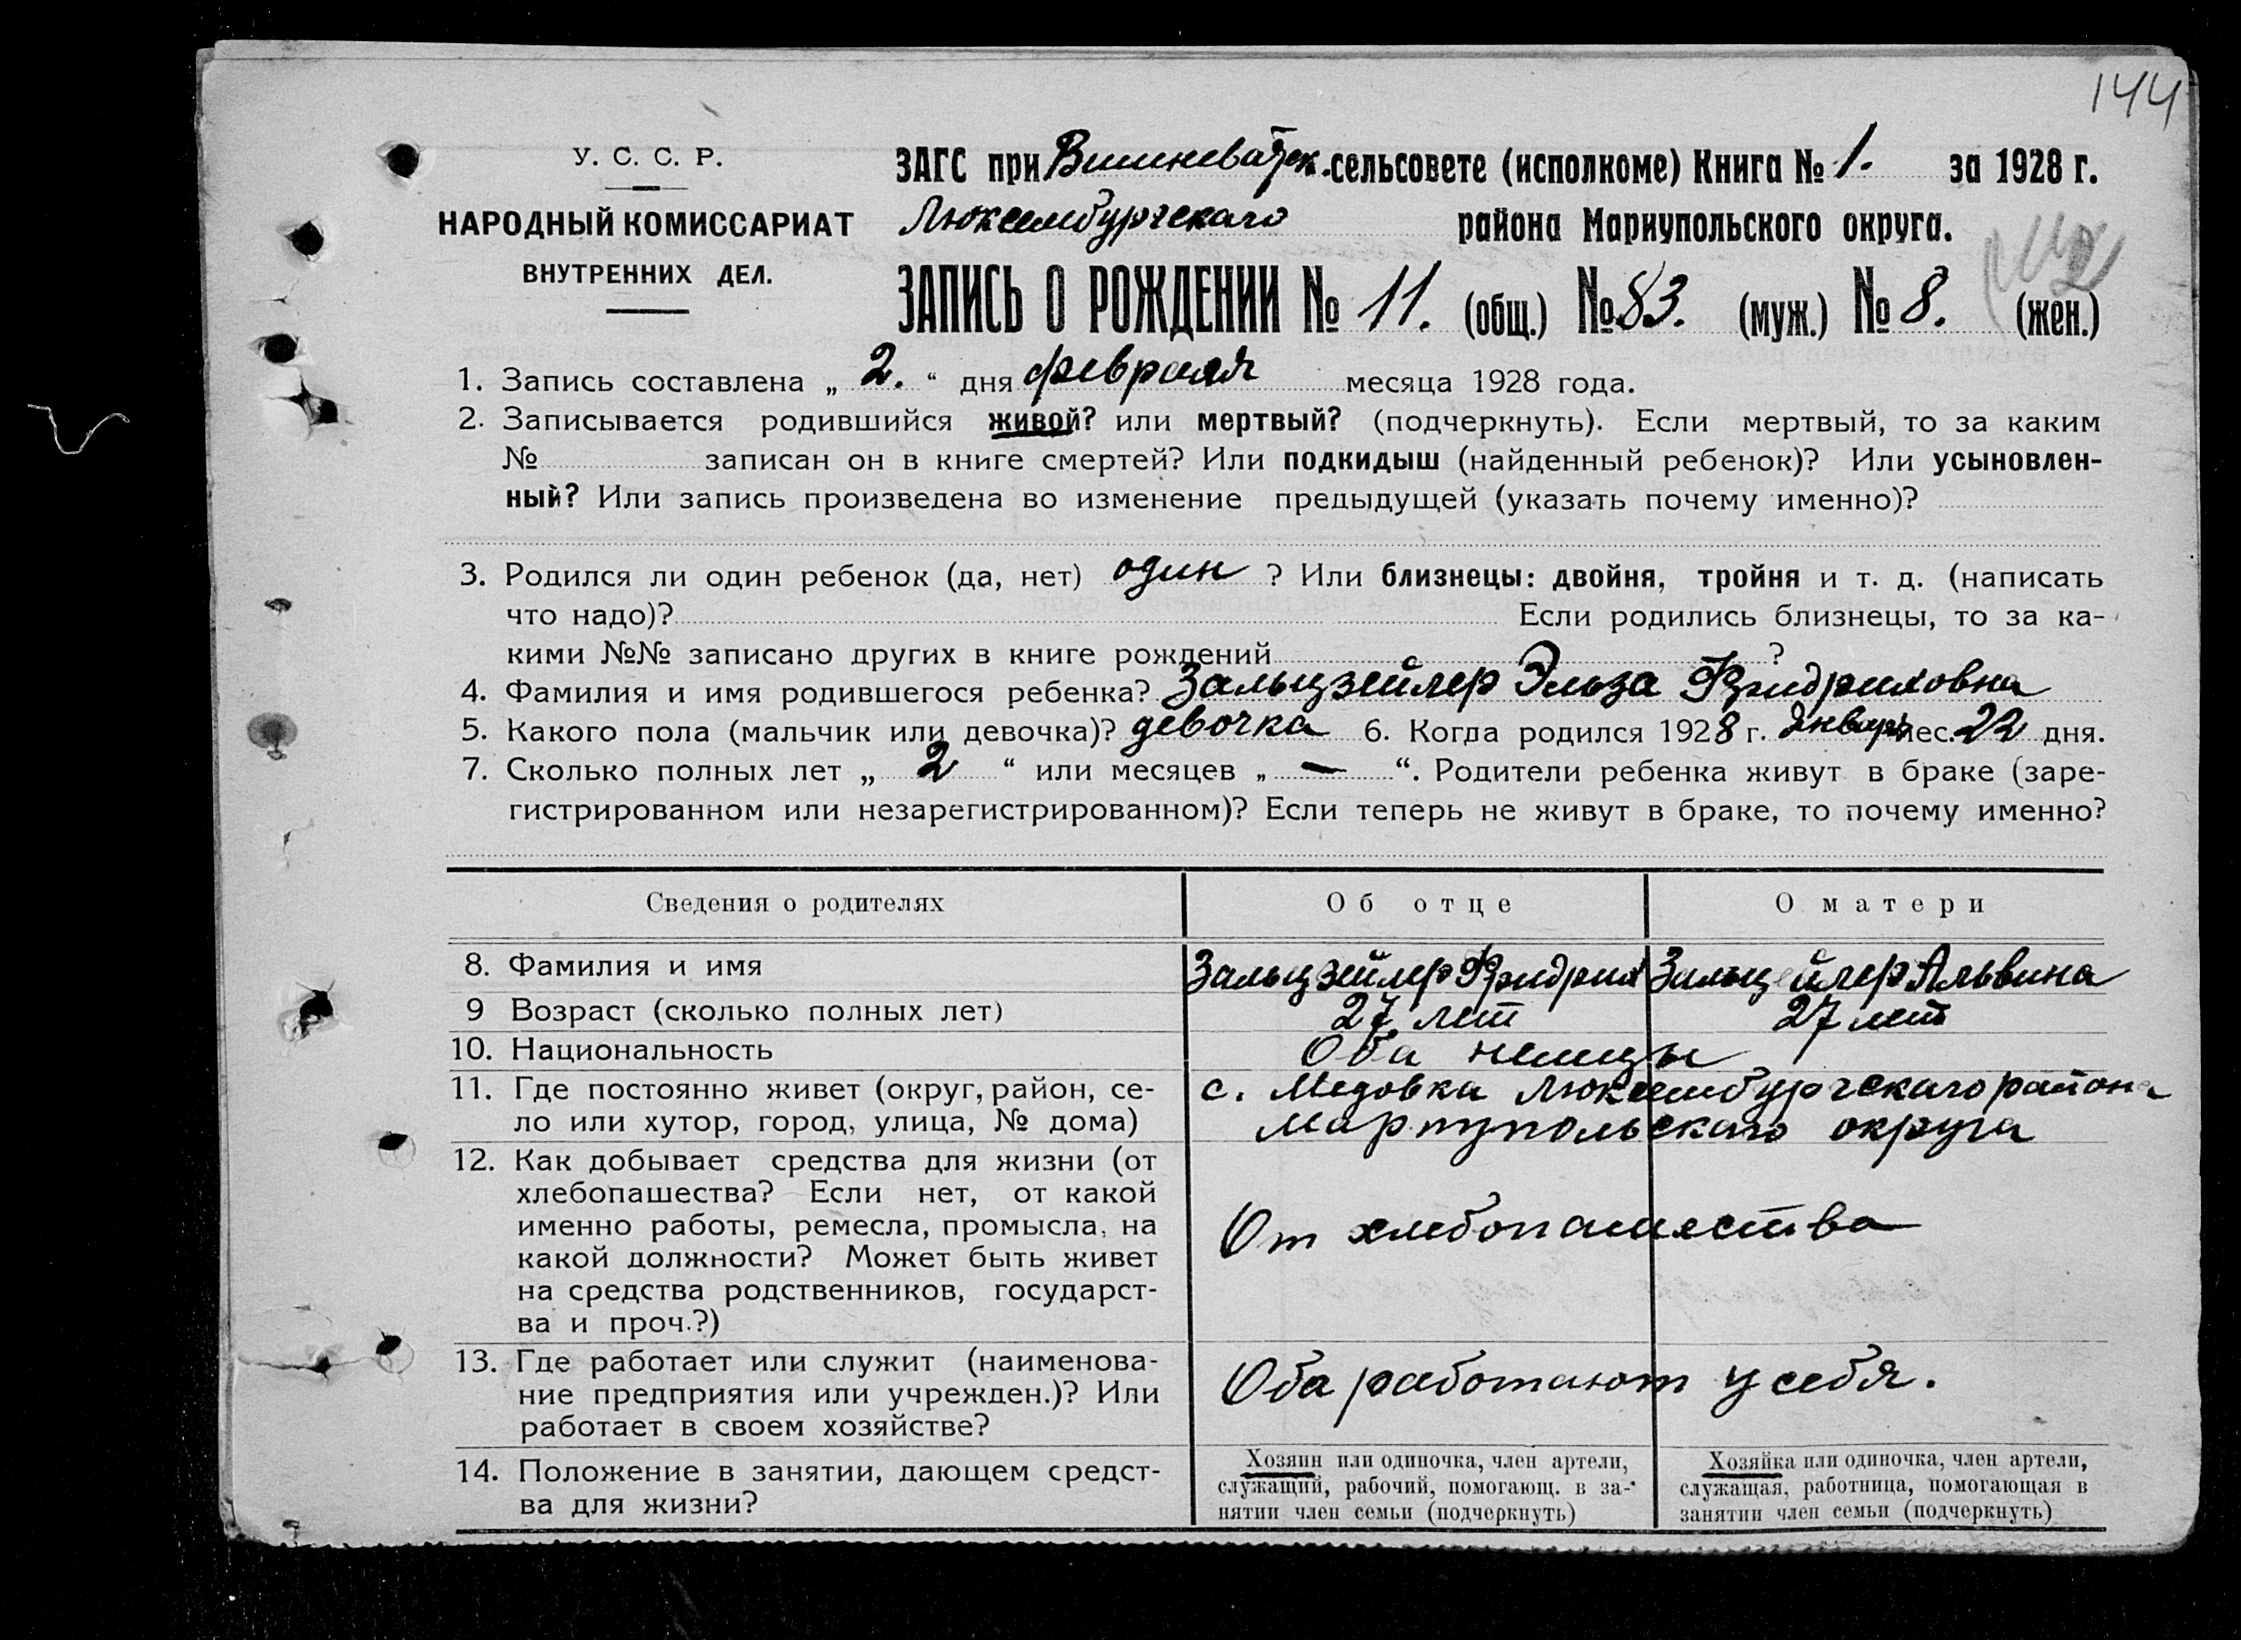 144
У. С. С. Р.
НАРОДНЫЙ КОМИССАРИАТ
ВНУТРЕННИХ ДЕЛ.
ЗАГС при Вишневатск. сельсовете (исполкоме) Книга № 1. за 1928 г.
Люксембургского района Мариупольского округа.
ЗАПИСЬ О РОЖДЕНИИ № 11. (общ.) № 83. (муж.) № 8. (жен.)
1. Запись составлена „ 2. “ дня февраля месяца 1928 года.
2. Записывается родившийся живой? или мертвый? (подчеркнуть). Если мертвый, то за каким
№ записан он в книге смертей? Или подкидыш (найденный ребенок)? Или усыновлен-
ный? Или запись произведена во изменение предыдущей (указать почему именно)?
3. Родился ли один ребенок (да, нет) один ? Или близнецы: двойня, тройня и т. д. (написать
что надо)? Если родились близнецы, то за ка-
кими №№ записано других в книге рождений ?
4. Фамилия и имя родившегося ребенка? Зальцзейлер Эльза Фридриховна
5. Какого пола (мальчик или девочка)? девочка 6. Когда родился 1928 г. январь мес. 22 дня.
7. Сколько полных лет „ 2 “ или месяцев „ — “. Родители ребенка живут в браке (заре-
гистрированном или незарегистрированном)? Если теперь не живут в браке, то почему именно?
Сведения о родителях Об отце О матери
8. Фамилия и имя Зальцзейлер Фридрих Зальцейлер Альвина
9 Возраст (сколько полных лет) 27 лет 27 лет
10. Национальность Оба немцы
11. Где постоянно живет (округ, район, се- с. Медовка Люксембургскаго района
ло или хутор, город, улица, № дома) Мариупольскаго округа
12. Как добывает средства для жизни (от
хлебопашества? Если нет, от какой
именно работы, ремесла, промысла, на От хлебопашества
какой должности? Может быть живет
на средства родственников, государст-
ва и проч.?)
13. Где работает или служит (наименова-
ние предприятия или учрежден.)? Или Оба работают у себя.
работает в своем хозяйстве?
14. Положение в занятии, дающем средст-
ва для жизни?
Хозяин или одиночка, член артели,
служащий, рабочий, помогающ. в за-
нятии член семьи (подчеркнуть)
Хозяйка или одиночка, член артели,
служащая, работница, помогающая в
занятии член семьи (подчеркнуть)